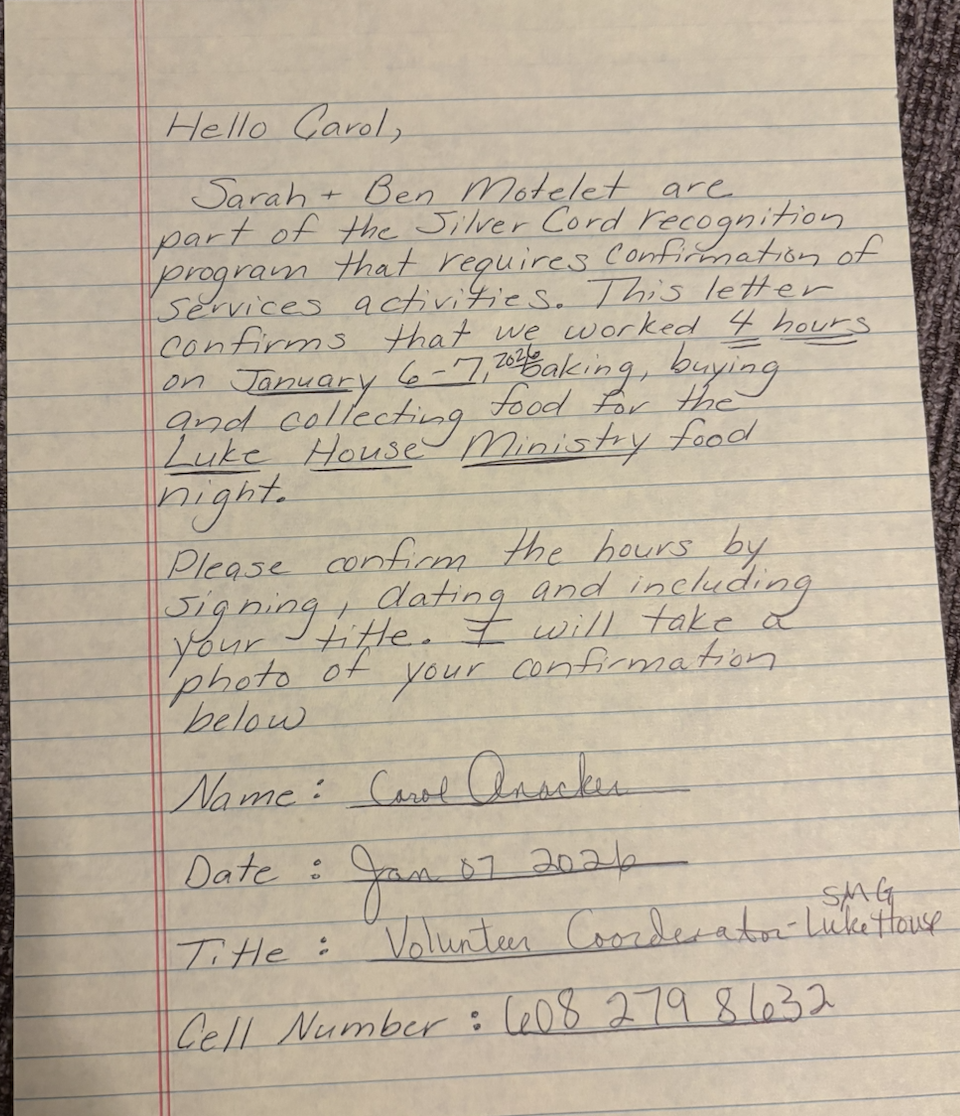 Hello Carol,
Sarah + Ben Motelet are
part of the Silver Cord recognition
program that requires confirmation of
services activities. This letter
confirms that we worked 4 hours
on January 6-7, 2026 baking, buying
and collecting food for the
Luke House Ministry food
night.
Please confirm the hours by
signing, dating and including
your title. I will take a
photo of your confirmation
below
Name: Carol Qnacker
Date: Jan 07 2026
SMG
Title: Volunteer Coorderator-Luke House
Cell Number: 608 279 8632